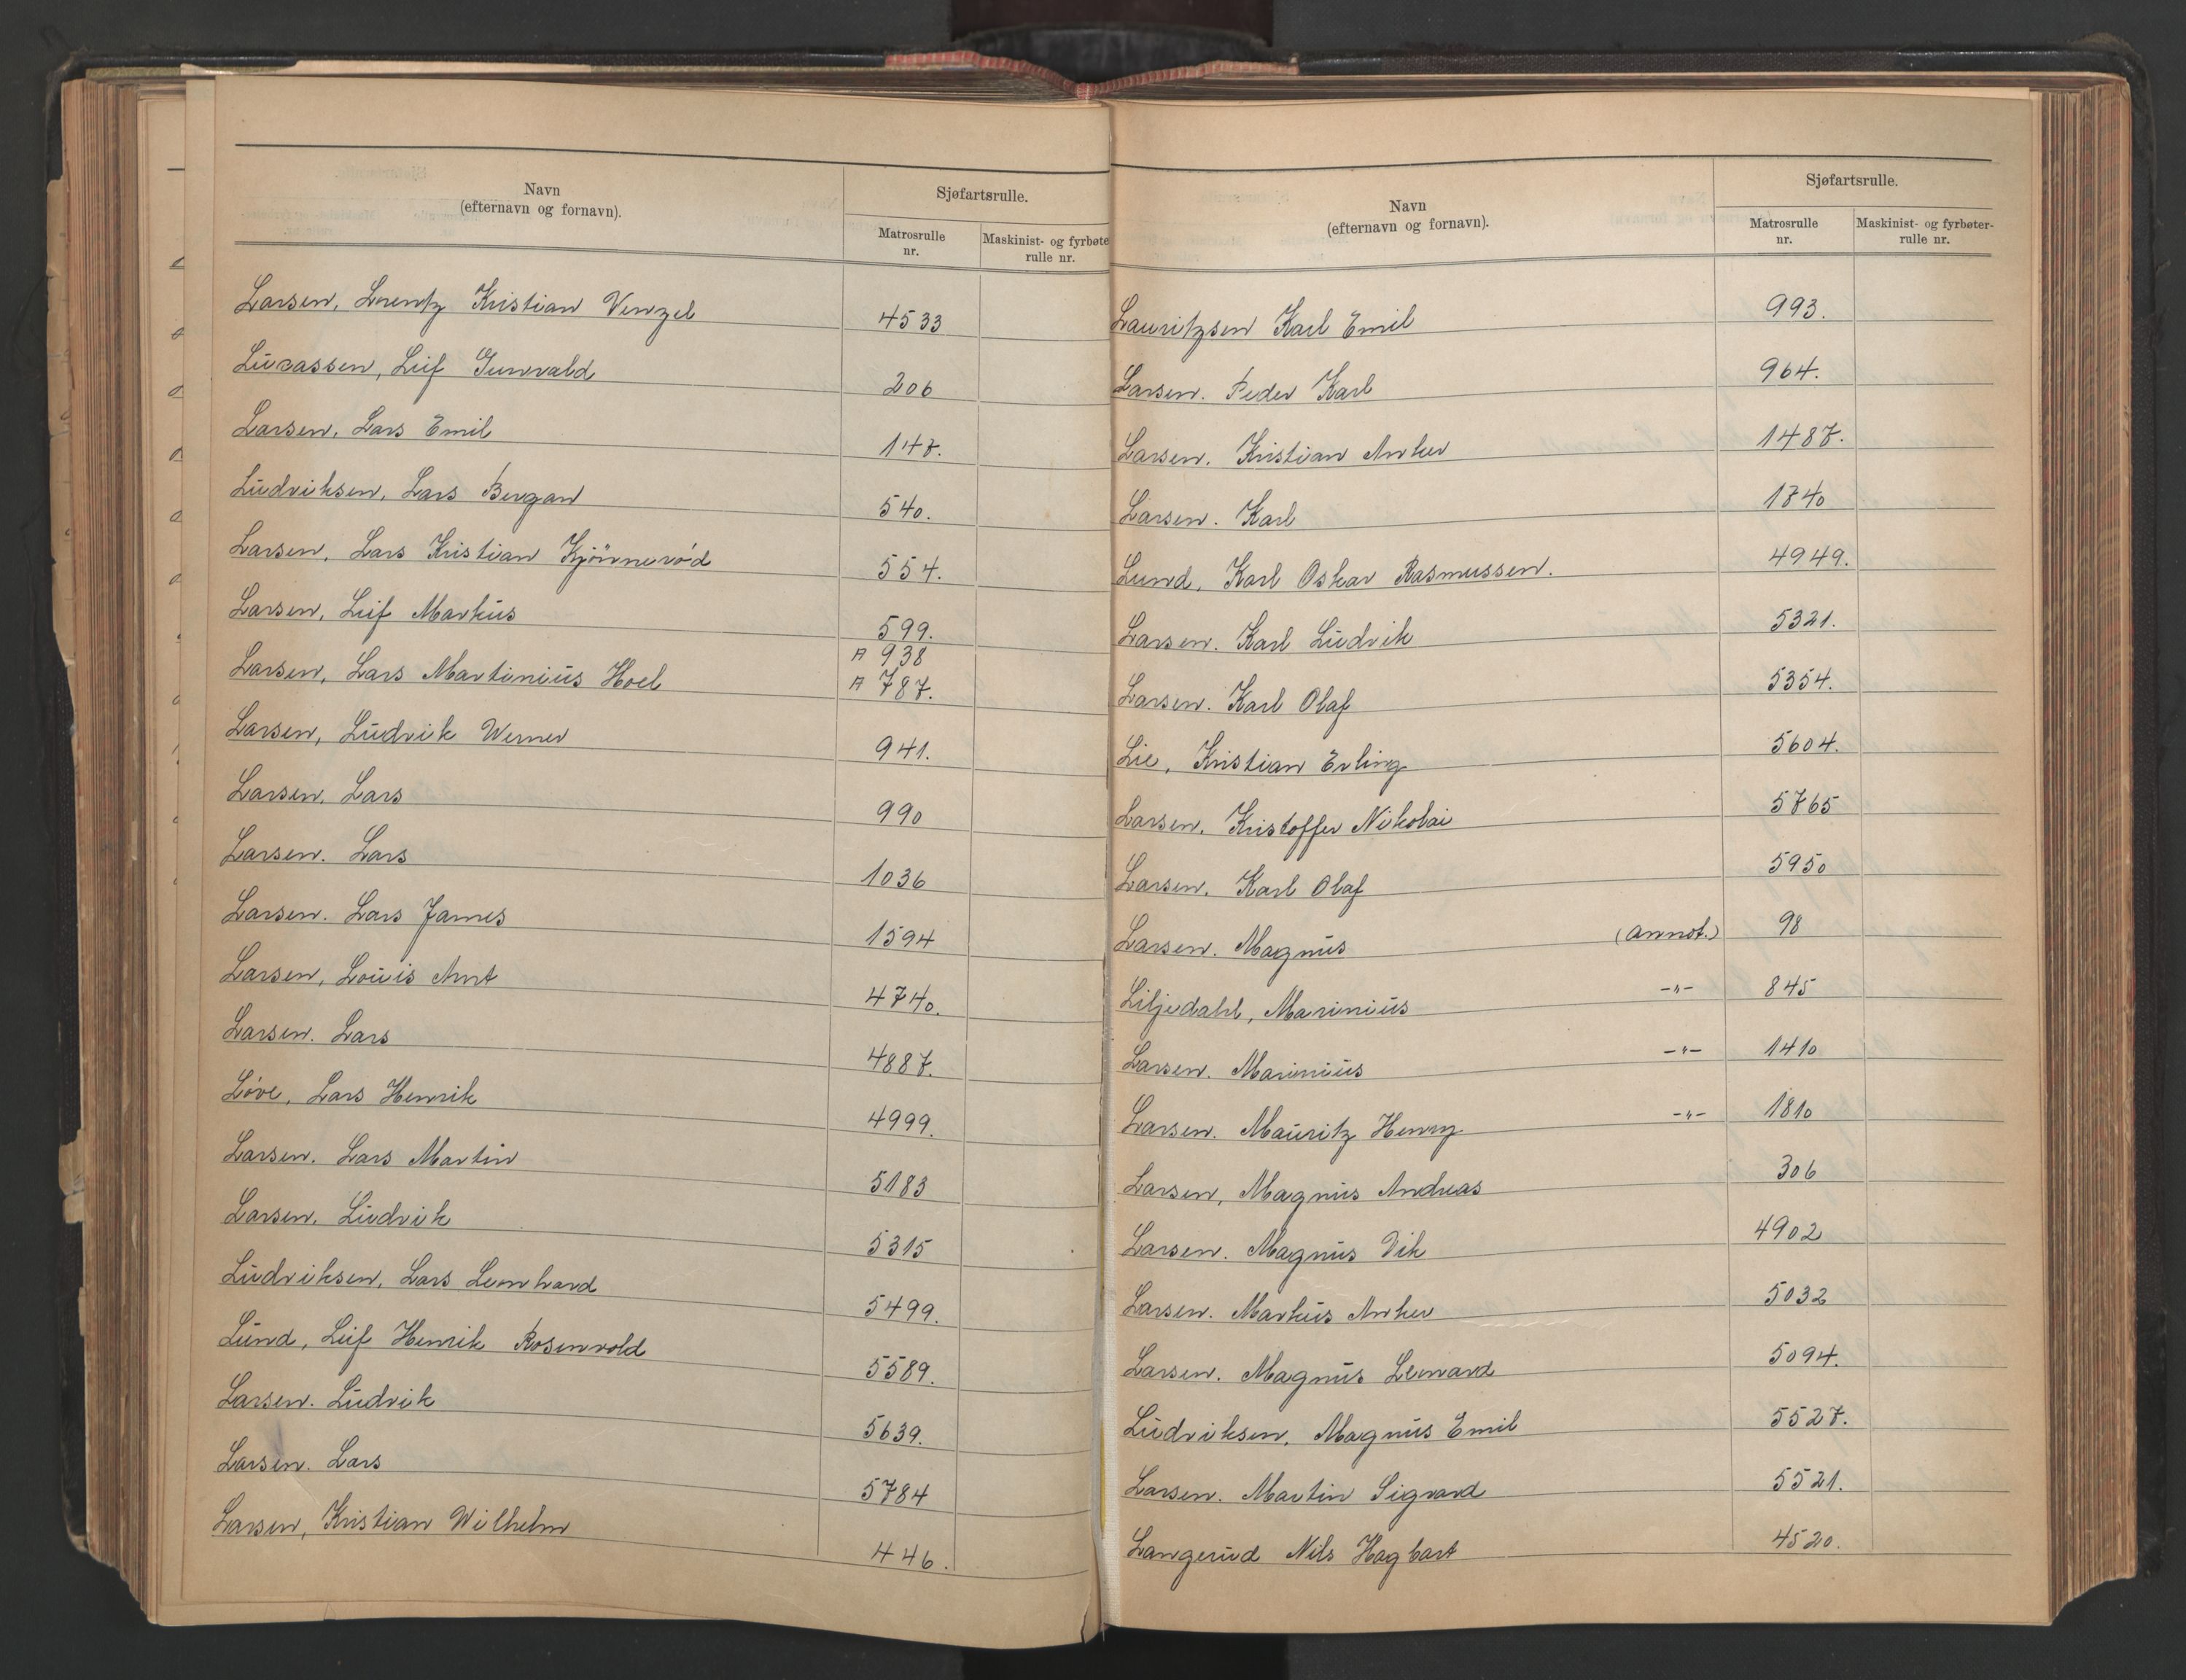 Navn
(efternavn og fornavn).
Sjøfartsrulle.
Matrosrulle
nr.
Maskinist- og fyrbøte
rulle nr.
Larsen, Lorentz Kristian Venzel 4533
Lucassen, Leif Gunvald 206
Larsen, Lars Emil 147.
Ludviksen, Lars Bergan 540.
Larsen, Lars Kristian Kjönnerød 554.
Larsen, Leif Markus 599.
A 938
Larsen, Lars Martinius Hoel A 787.
Larsen, Ludvik Werner 941.
Larsen, Lars 990
Larsen. Lars 1036
Larsen. Lars James 1594
Larsen, Louis Arnt 4740.
Larsen. Lars 4887.
Løve, Lars Henrik 4999.
Larsen. Lars Martin 5183
Larsen. Ludvik 5315
Ludviksen, Lars Leonhard 5499.
Lund, Leif Henrik Rosenvold 5589.
Larsen. Ludvik 5639.
Larsen. Lars 5784
Larsen, Kristian Wilhelm 446.
Navn
(efternavn og fornavn).
Sjøfartsrulle.
Matrosrulle
nr.
Maskinist- og fyrbøter-
rulle nr.
Lauritzsen Karl Emil 993.
Larsen. Peder Karl 964.
Larsen. Kristian Anker 1487.
Larsen. Karl 1740
Lund, Karl Oskar Rasmussen. 4949.
Larsen. Karl Ludvik 5321.
Larsen. Karl Olaf 5354.
Lie, Kristian Erling 5604.
Larsen, Kristoffer Nikolai 5765
Larsen. Karl Olaf 5950
Larsen. Magnus (Annot.) 98
Liljedahl, Marinius -"- 845
Larsen. Marinius -"- 1410
Larsen. Mauritz Henry -"- 1810
Larsen, Magnus Andreas 306
Larsen. Magnus Vik 4902
Larsen. Markus Anker 5032
Larsen. Magnus Lenvard 5094.
Ludviksen, Magnus Emil 5527.
Larsen. Martin Sigvard 5521.
Langerud Nils Hagbart 4520.